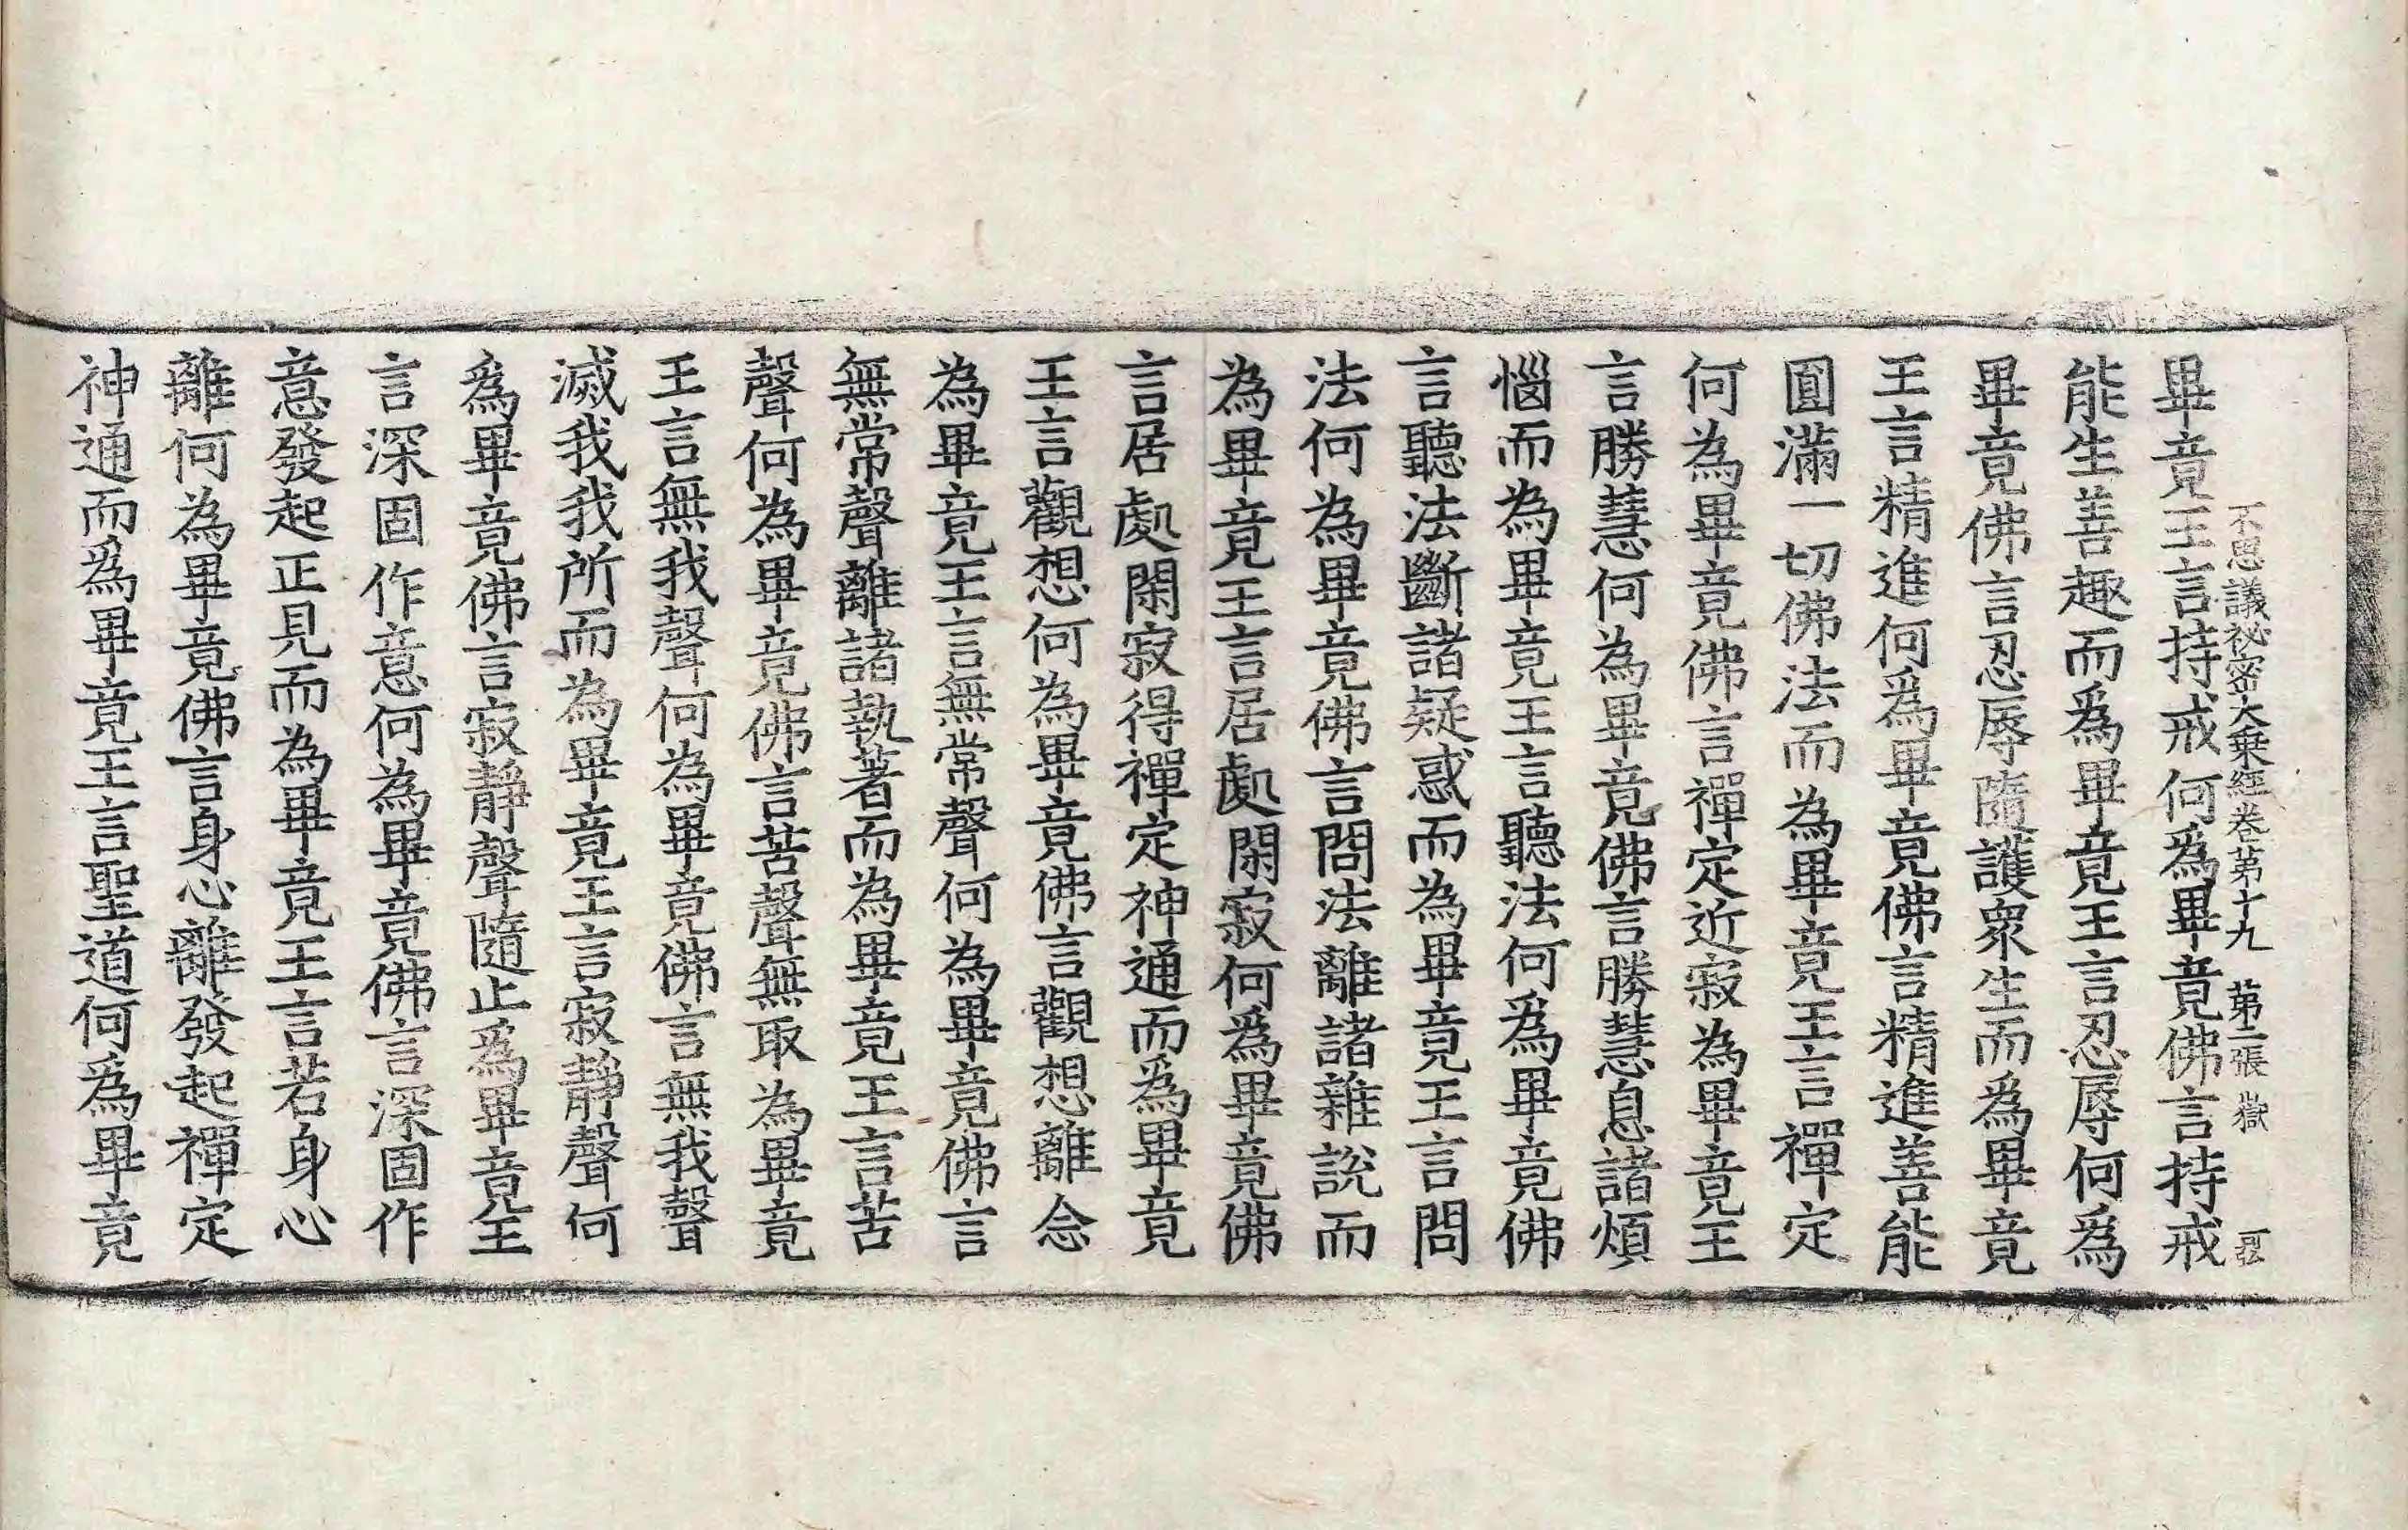 不思議祕密大乗經卷第十九　第二張　嶽
畢竟王言持戒何爲畢竟佛言持戒
能生善趣而爲畢竟王言忍辱何爲
畢竟佛言忍辱隨護衆生而爲畢竟
王言精進何爲畢竟佛言精進善能
圓滿一切佛法而為畢竟王言禪定
何為畢竟佛言禪定近寂為畢竟王
言勝慧何為畢竟佛言勝慧息諸煩
惱而為畢竟王言聽法何爲畢竟佛
言聽法斷諸疑惑而為畢竟王言問
法何為畢竟佛言問法離諸雜說而
為畢竟王言居處閑寂何爲畢竟佛
言居處閑寂得禪定神通而為畢竟
王言觀想何為畢竟佛言觀想離念
為畢竟王言無常聲何為畢竟佛言
無常聲離諸執著而為畢竟王言苦
聲何為畢竟佛言苦聲無取為畢竟
王言無我聲何為畢竟佛言無我聲
滅我我所而為畢竟王言寂靜聲何
爲畢竟佛言寂靜聲隨止爲畢竟王
言深固作意何為畢竟佛言深固作
意發起正見而為畢竟王言若身心
離何為畢竟佛言身心離發起禪定
神通而爲畢竟王言聖道何爲畢竟